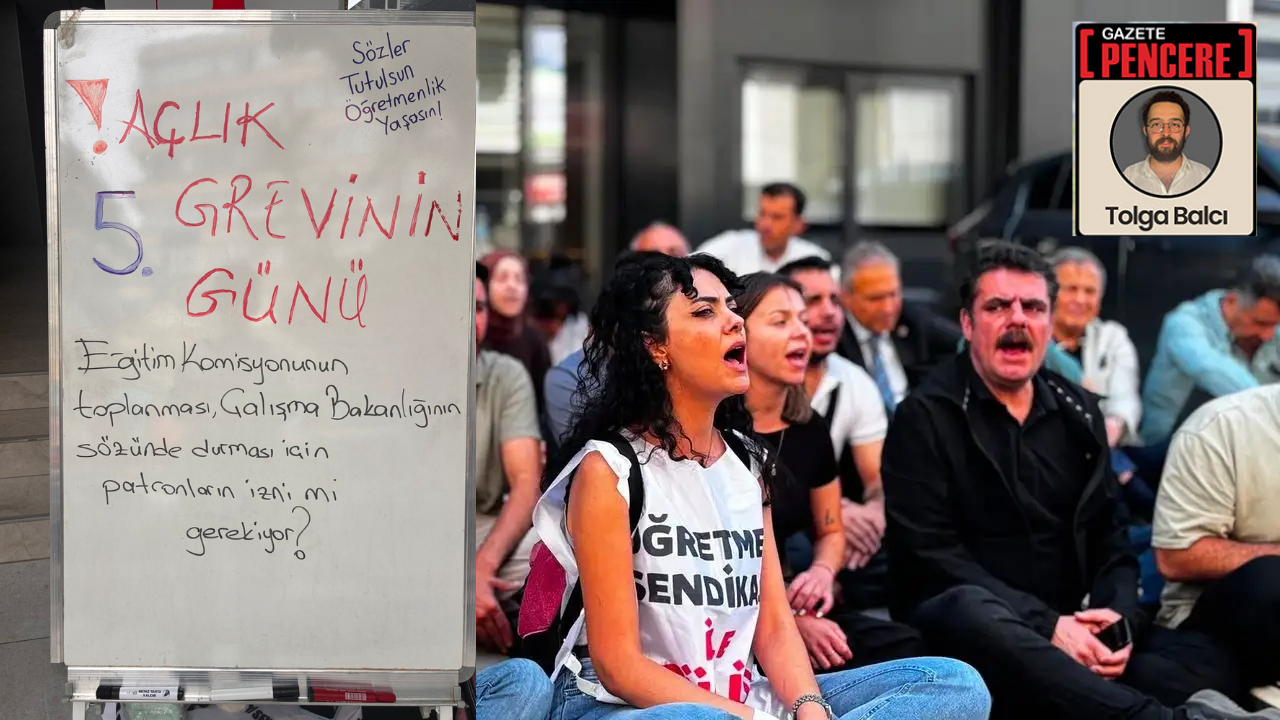 Sözler
Tutulsun
Öğretmenlik
Yaşasın!
! AÇLIK
5. GREVİNİN
GÜNÜ
Eğitim Komisyonunun
toplanması, Çalışma Bakanlığının
sözünde durması için
patronların izni mi
gerekiyor?
ÖĞRETME
SENDİKA
İLE
GAZETE
[PENCERE]
Tolga Balcı